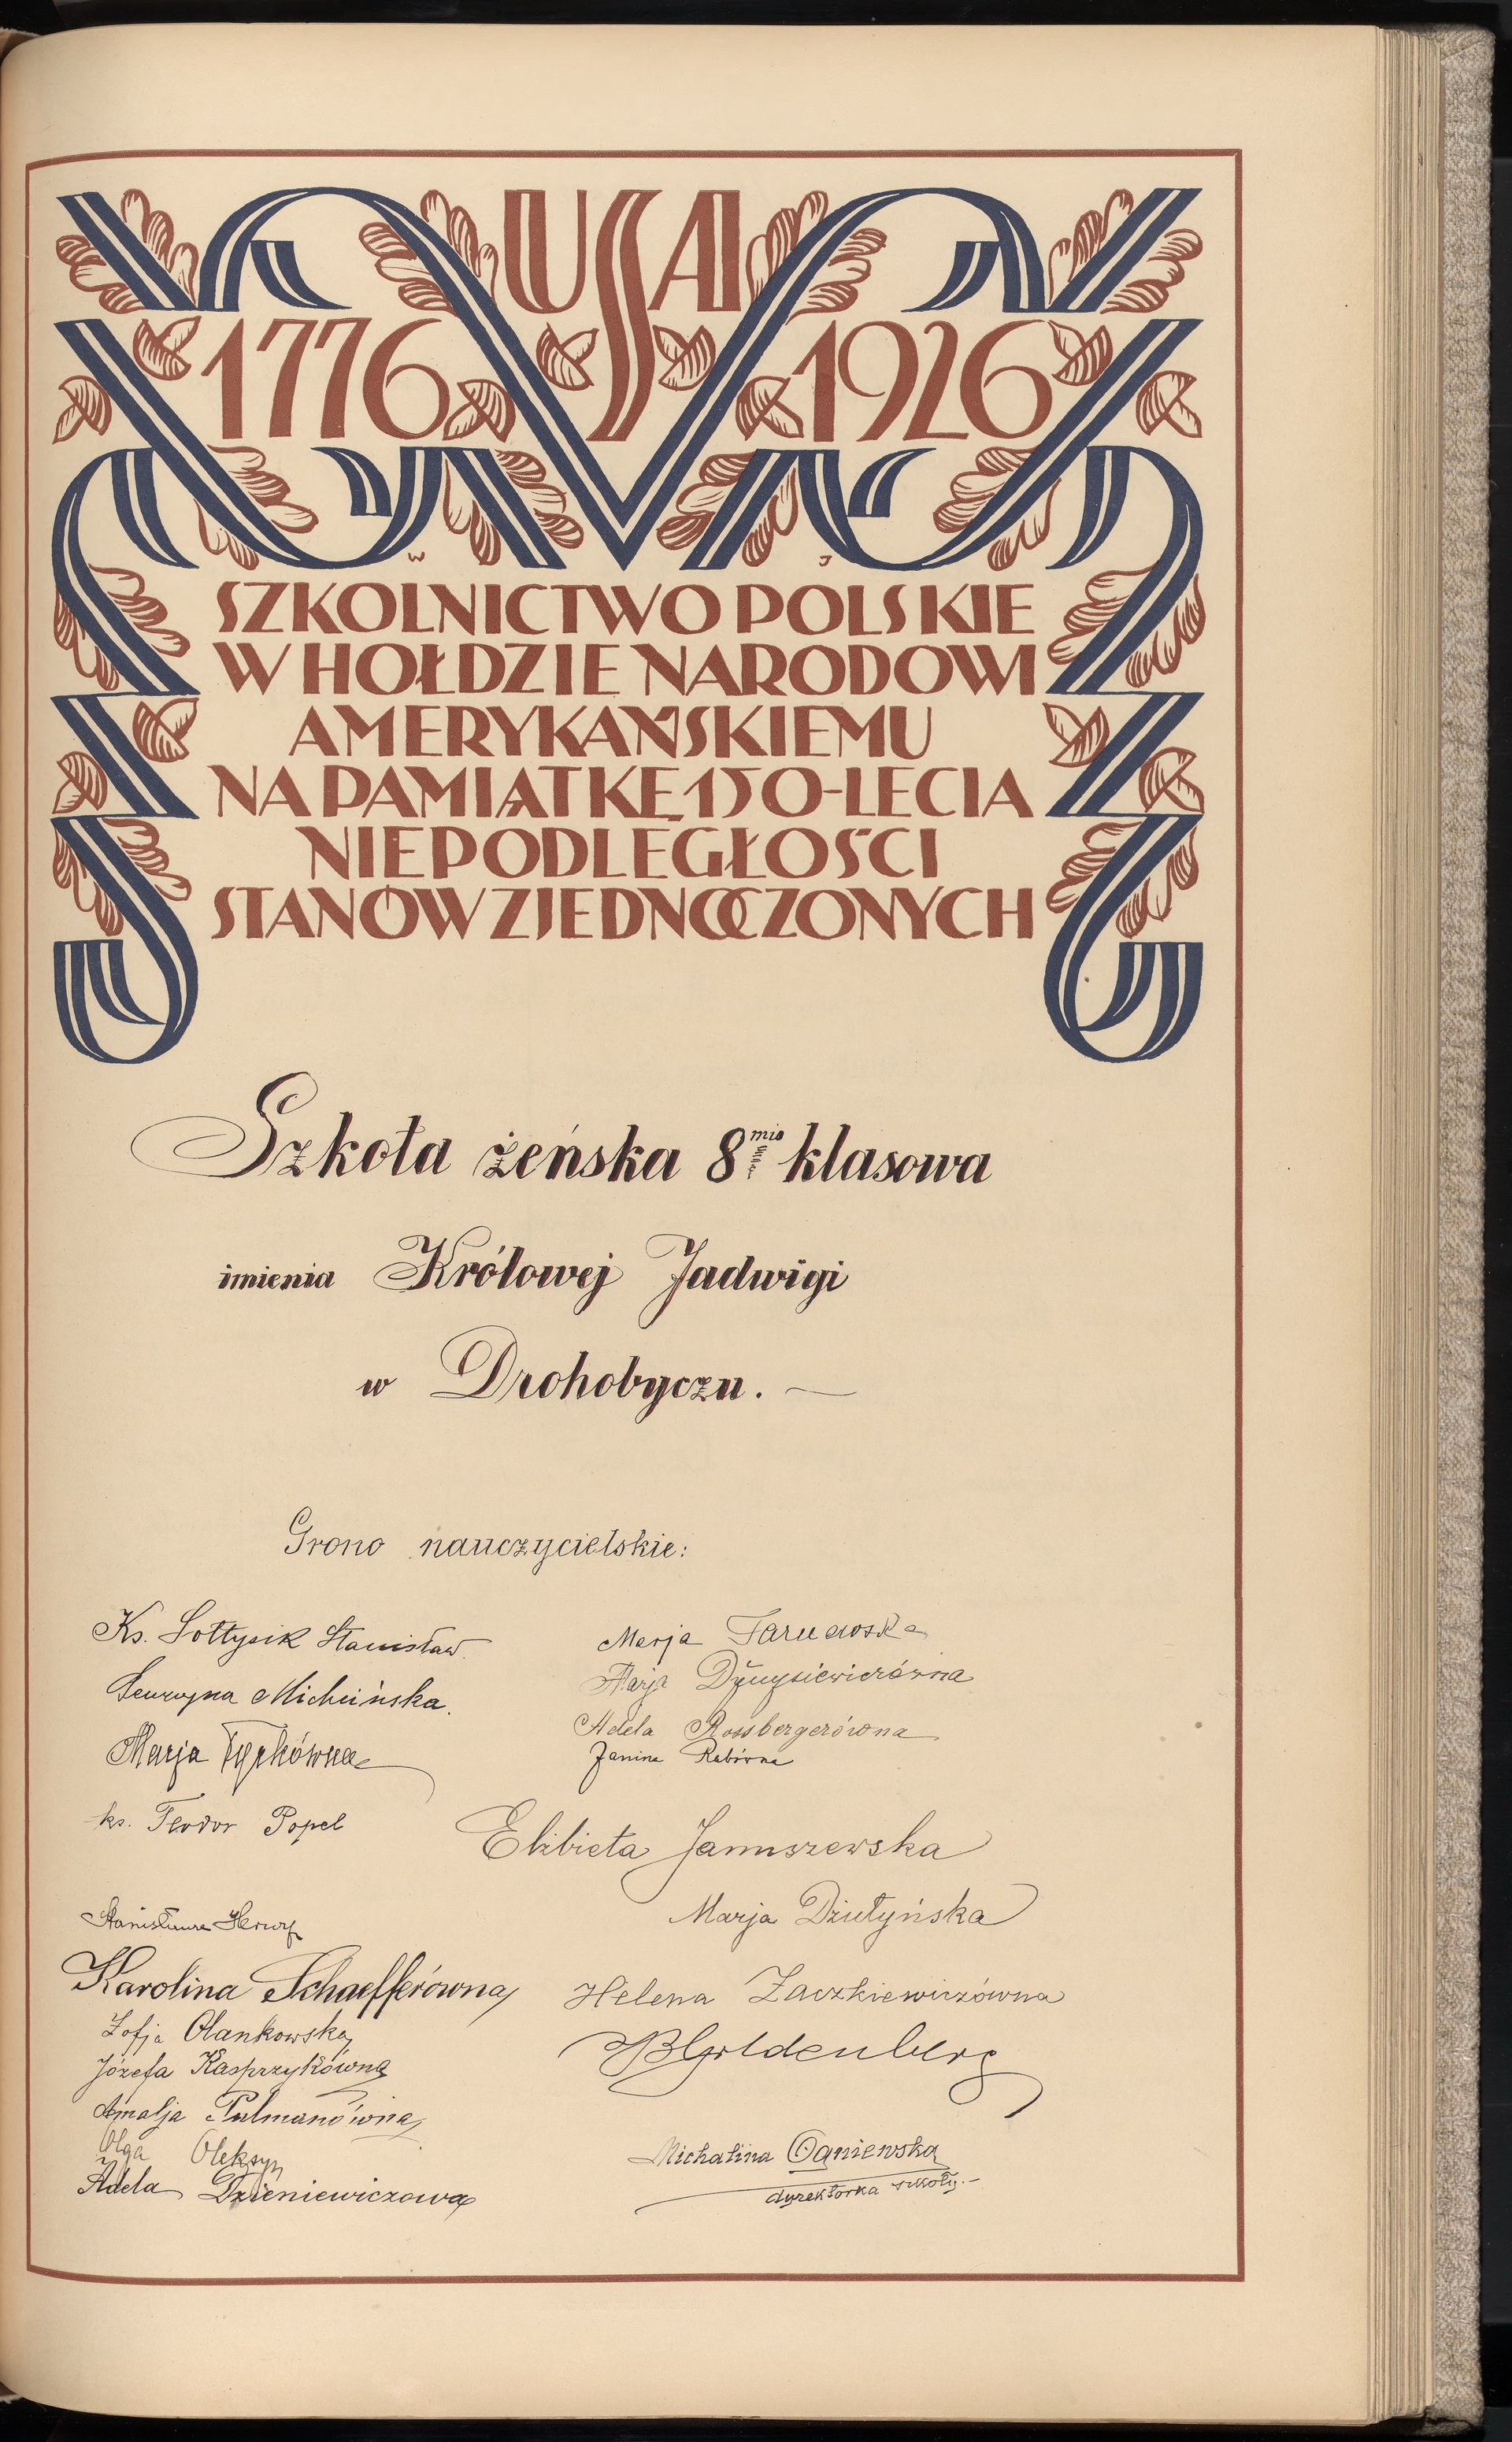 USA
1776 1926
W J
SZKOLNICTWO POLSKIE
W HOŁDZIE NARODOWI
AMERYKAŃSKIEMU
NA PAMIĄTKĘ 150-LECIA
NIEPODLEGŁOŚCI
STANÓW ZJEDNOCZONYCH
Szkoła żeńska 8mio klasowa
imienia Królowej Jadwigi
w Drohobyczu. —
Grono nauczycielskie:
Ks. Sołtysik Stanisław.
Seweryna Michińska.
Marja Tyrkówna
ks. Teodor Popel
Stanisława
Karolina Schaefferówna
Zofja Olankowska
Józefa Kasprzykówna
Amalja Pulmanówna
Olga Oleksyn
Adela Dzieniewiczowa
Marja Tarnawska
Marja
Adela Rossbergerówna
Janina Rabówna
Elżbieta Januszewska
Marja Dziułyńska
Helena Zaczkiewiczówna
BGoldenberg
Michalina Ogniewska
dyrektorka szkoły.—